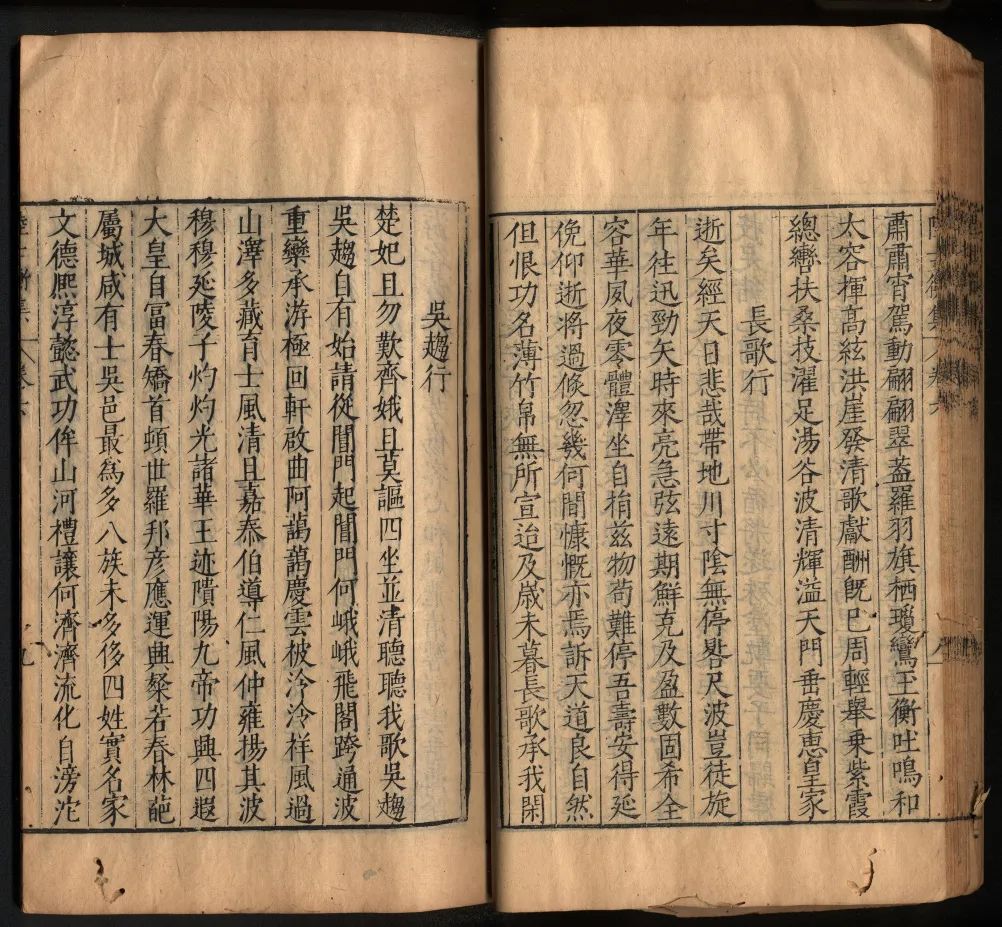 肅肅宵駕動翩翩翠蓋羅羽旗栖瓊鸞玉衡吐鳴和
太容揮髙絃洪崖發清歌獻酬旣巳周輕舉乗紫霞
總轡扶桑技濯足湯谷波清輝溢天門垂慶惠皇家
長歌行
逝矣經天日悲哉帶地川寸陰無停晷尺波豈徒旋
年往迅勁矢時來亮急弦遠期鮮克及盈數固希全
容華夙夜零體澤坐自捐兹物苟難停吾壽安得延
俛仰逝將過倐忽幾何間慷慨亦焉訴天道良自然
但恨功名薄竹帛無所宣迨及歳未暮長歌承我閑
吳趨行
楚妃且勿歎齊娥且莫謳四坐並清聽聽我歌吳趨
吳趨自有始請從閶門起閶門何峨峨飛閣跨通波
重欒承游極回軒啟曲阿藹藹慶雲被泠泠祥風過
山澤多藏育士風清且嘉泰伯導仁風仲雍揚其波
穆穆延陵子灼灼光諸華王迹隤陽九帝功興四遐
大皇自富春矯首頓世羅邦彦應運興粲若春林葩
屬城咸有士吳邑最為多八族未多侈四姓實名家
文德熈淳懿武功侔山河禮讓何濟濟流化自滂沱